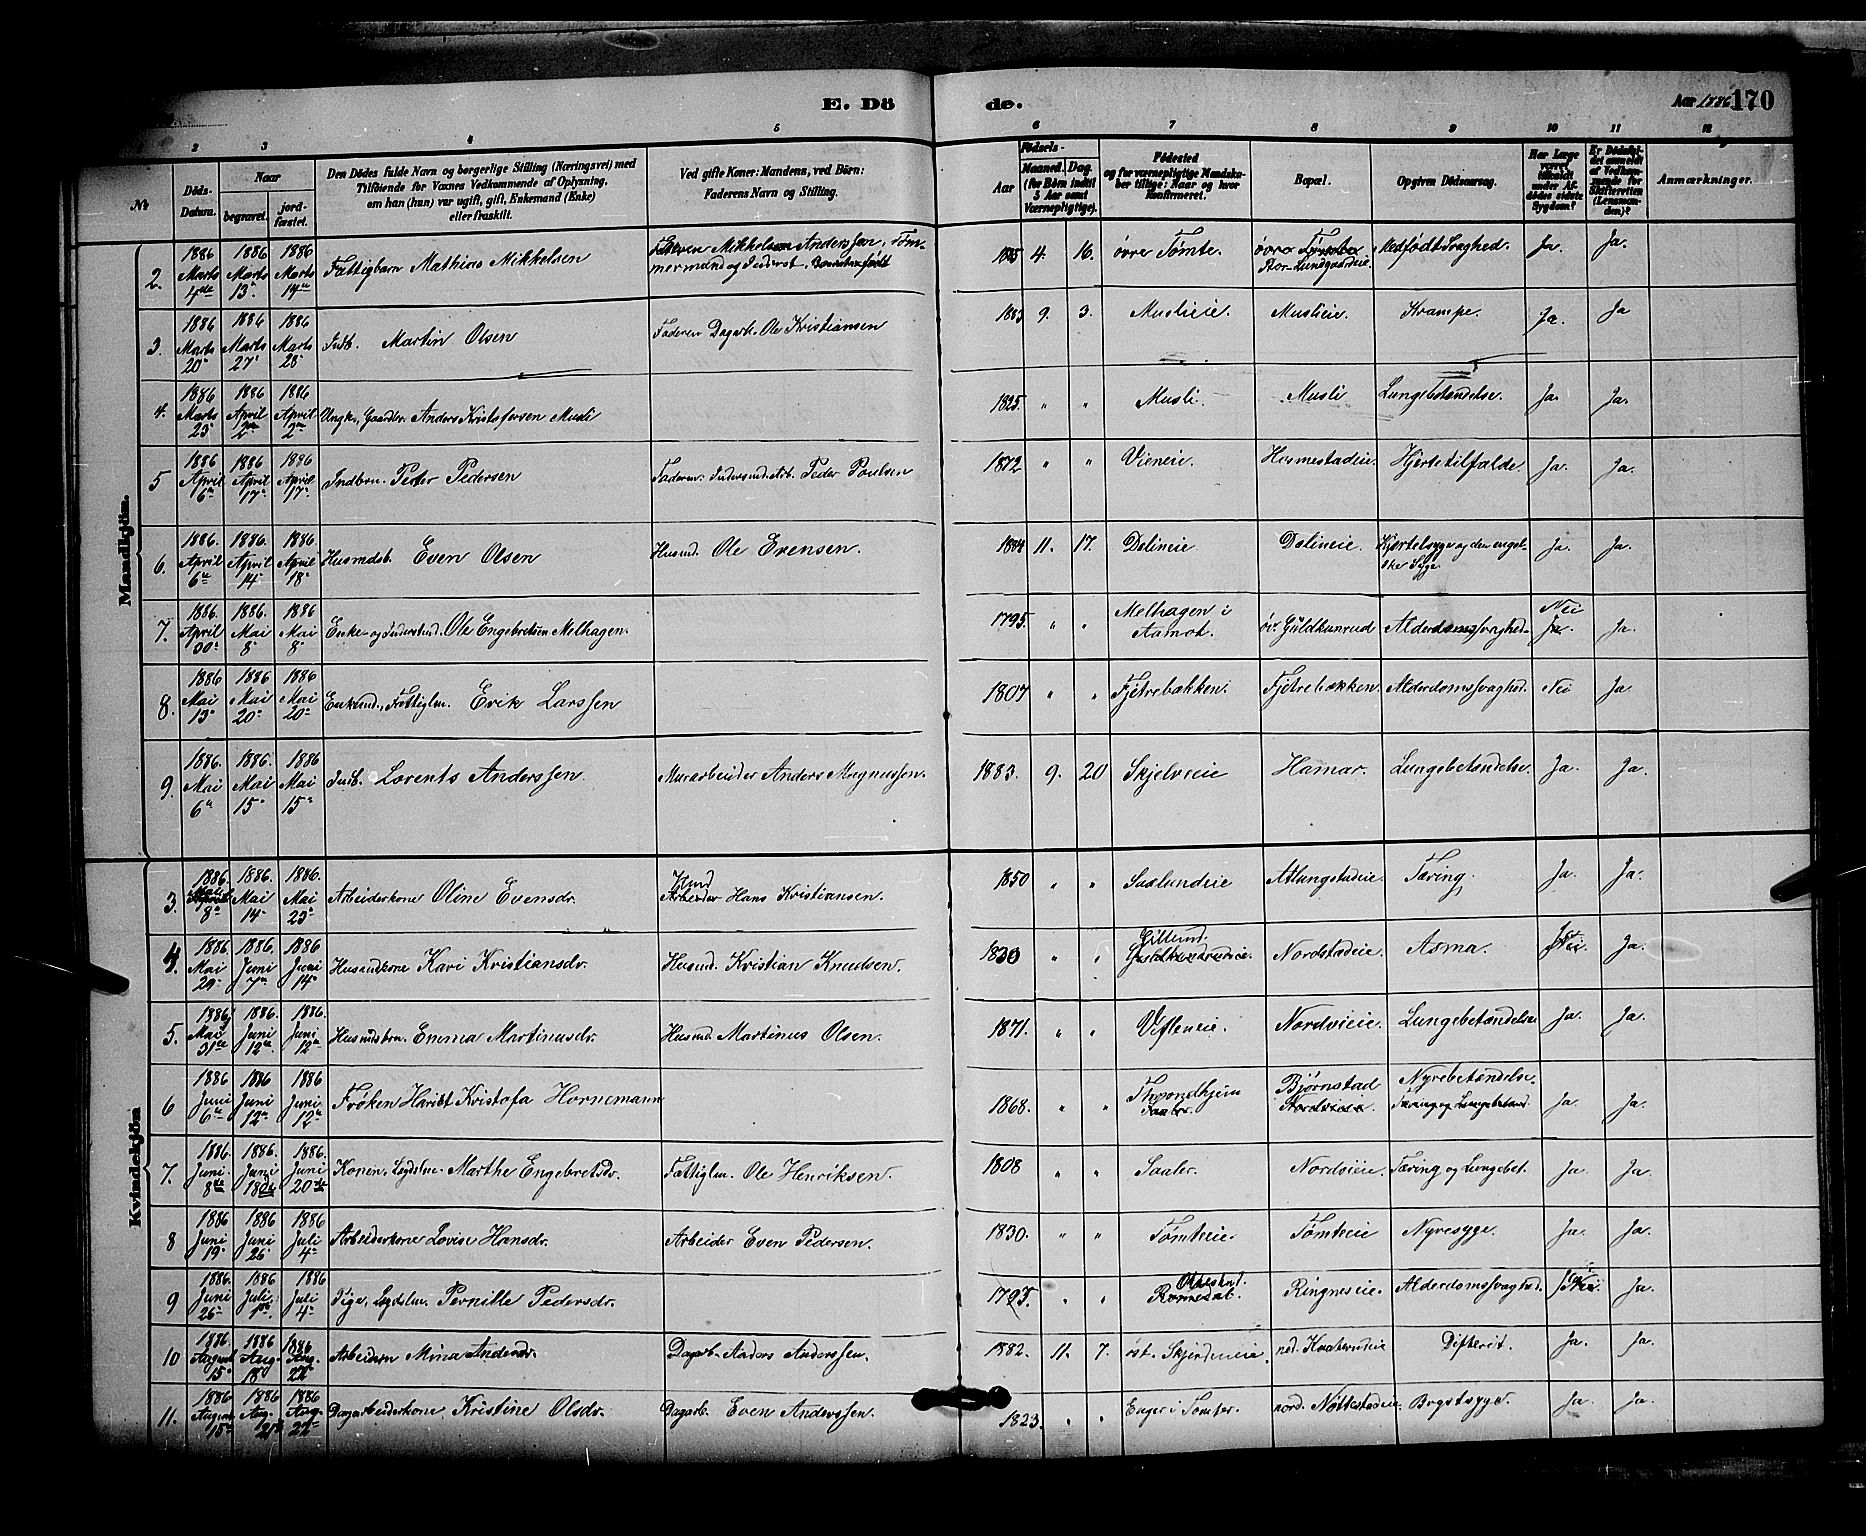 E. Dö de.
Aar 1886 170
2 3 4 5 6 7 8 9 10 11 12
No
Döds-Datum.
Naar
begravet.
jord-fæstet.
Den Dödes fulde Navn og borgerlige Stilling (Næringsvei) med
Tilföiende for Voxnes Vedkommende af Oplysning,
om han (hun) var ugift, gift, Enkemand (Enke)
eller fraskilt.
Ved gifte Koner: Mandens, ved Börn:
Faderens Navn og Stilling.
Födsels-
Aar
Maaned. Dag.
(for Börn indtil
5 Aar samt
Værnepligtige).
Födested
og for værnepligtige Mandska-
ber tillige: Naar og hvor
Konfirmeret.
Bopæl.
Opgiven Dödsaarsag.
Har Læge
været
tilkaldt
under Af-
dödes sidste
Sygdom?
Er Dödsfal-
det anmeldt
af Vedkom-
mende for
Skifteretten
(Lensman-
den)?
Anmærkninger.
Mandkjön.
2. 1886 Marts 4de 1886 Marts 13. 1886 Marts 14de Fattigbarn Mathias Mikkelsen Faderen Mikkelsen Anderssen, Töm-
mermand og Inderst. 4. 16. övre Tömte. övre Stor-Lundgaardeie. Medfödt Svaghed. Ja. Ja.
3. 1886 Marts 20 1886 Marts 27 1886 Marts 28 Indb. Martin Olsen Faderen Dagarb. Ole Kristiansen 1883 9. 3. Muslieie. Muslieie. Krampe. Ja. Ja
4. 1886 Marts 23 1886 April 2den 1886 April 2den Ungk., Gaardbr. Anders Kristofersen Musli 1825. " " Musli. Musli Lungebetændelse. Ja. Ja.
5 1886 April 6te 1886 April 17. 1886 April 17. Indbrn. Peter Pedersen Faderen: Indersmd. Arb. Peder Poulsen 1872 " " Vieneie. Hesmestadeie. Hjertetilfælde. Ja. Ja.
6. 1886. April 6te 1886. April 14 1886 April 18 Husmdsb. Even Olsen Husmd. Ole Evensen. 1884 11. 17. Delineie Delineie. Kjertelsyge og den engel-
ske Syge. Ja. Ja.
7. 1886. April 30 1886. Mai 8 1886 Mai 8 Enke- og Inderstmd. Ole Engebretsen Melhagen. 1795. " " Melhagen i
Aamot. öv. Guldkunrud Alderdomssvaghed Nei
Ja. Ja.
8. 1886 Mai 13 1886 Mai 20 1886 Mai 20 Enkemd., Fattiglm. Erik Larssen 1807 " " Fjetrebækken. Fjetrebækken. Alderdomssvaghed. Nei Ja.
9. 1886. Mai 6te 1886. Mai 15 1886 Mai 15 Indb. Lorents Anderssen Murarbeider Anders Magnussen. 1883. 9. 20 Skjelveeie Hamar. Lungebetændelse. Ja. Ja.
Kvindekjön
3. 1886. Mai 8 1886. Mai 14 1886. Mai 23 Arbeiderkone Oline Evensdr. Husmd
Arbeider Hans Kristiansen. 1850 " " Saalundeie Atlungstadeie. Tæring. Ja. Ja.
4. 1886 Mai 29 1886. Juni 7de 1886. Juni 14 Husmdkone Kari Kristiansdr. Husmd. Kristian Knudsen. 1830 " " Gillund.
Guldkundrudeie. Nordstadeie. Asma. Nei Ja.
5. 1886 Mai 31te 1886. Juni 12te 1886. Juni 12te Husmdsbrn. Emma Martinusdr. Husmd. Martinus Olsen. 1871. " " Viflereie. Nordvieie. Lungebetændelse Ja. Ja.
6 1886 Juni 6te 1886 Juni 12te 1886. Juni 12te Fröken Hariet Kristofa Hornemann 1868. " " Throndhjem
Saaler Björnstad
Nordvieie. Nyrebetændelse.
Tæring og Lungebetænd. Ja. Ja.
7. 1886. Juni 8de 1886. Juni 18de 1886. Juni 20de Konen. Legdslm. Marthe Engebretsdr. Fattiglm. Ole Henriksen. 1808 " " Saaler. Nordvieie. Tæring og Lungebet. Ja. Ja.
8 1886 Juni 19 1886 Juni 26 1886 Juli 4 Arbeiderkone Lovise Hansdr. Arbeider Even Pedersen. 1830. " " Tömteeie. Tömteeie Nyresyge. Ja. Ja.
9 1886. Juni 26 1886 Juli. 1ste 1886 Juli 4 Pige. Legdslm. Pernille Pedersdr. 1795. " " Ottestad.
Romedal. Ringneseie. Alderdomssvaghed. Nei. Ja.
10 1886. August 15 1886 Aug. 18 1886 Aug. 22 Arbeiderbn Mina Andersdr. Dagarb. Anders Anderssen. 1882. 11. 7. öst. Skjerdeneie. ned. Kvaterudeie Difterit. Ja. Ja.
11. 1886 August 15 1886 Aug. 21 1886 Aug. 22 Dagarbeiderkone Kristine Olsdr. Dagarb. Even Anderssen. 1823. " " Enger i Tomter. nord. Nöttestadeie. Brystsyge. Ja. Ja.